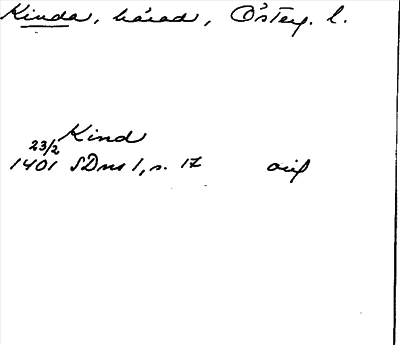 Kinda, härad, Österg. l.
Kind
23/2
1401 SDns 1, s. 17 avs